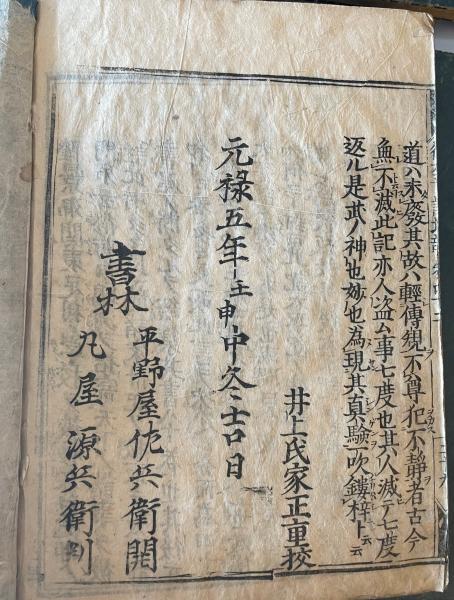 道ハ未發其故ハ輕傳覬不尊犯不靜者古今
無不滅此記亦人盗ム事七度也其人滅テ七度
返ル是武ノ神也妙也為現其真驗吹鏤梓ト云云
井上氏家正重挍
元禄五年壬申中冬吉日
書林
平野屋佐兵衛開
丸屋源兵衛刊